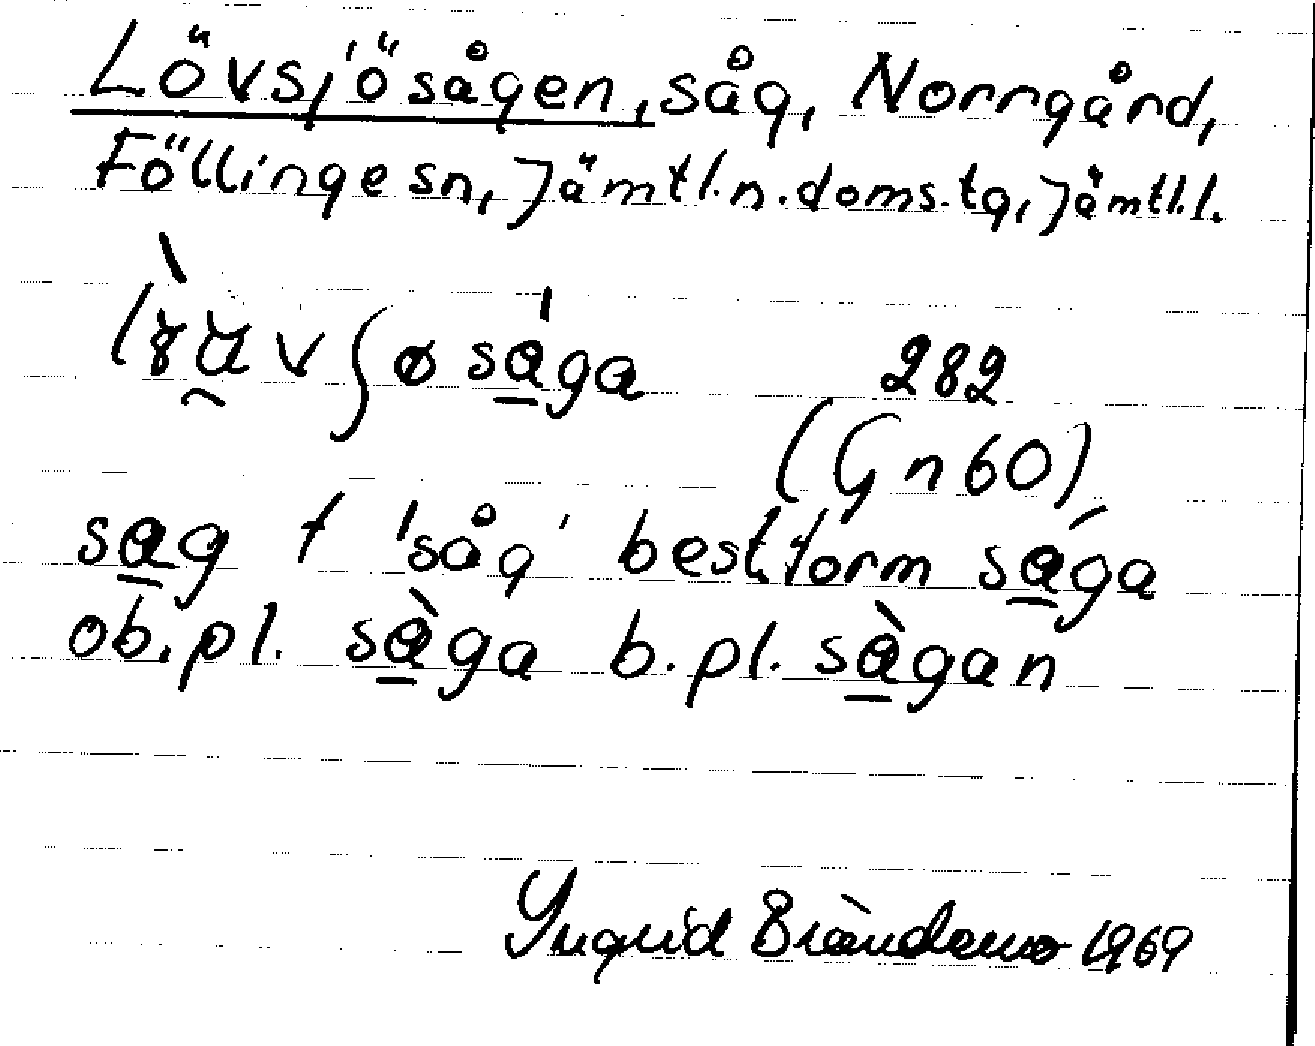 Lövsjösågen, såg, Norrgård,
Föllinge sn, Jämtl. n. doms. tg, Jämtl. l.
såga 282
(Gn 60)
sag f 'såg' best. form sága
ob. pl. sàga b. pl. sàgan
Ingrid Brändemo 1969